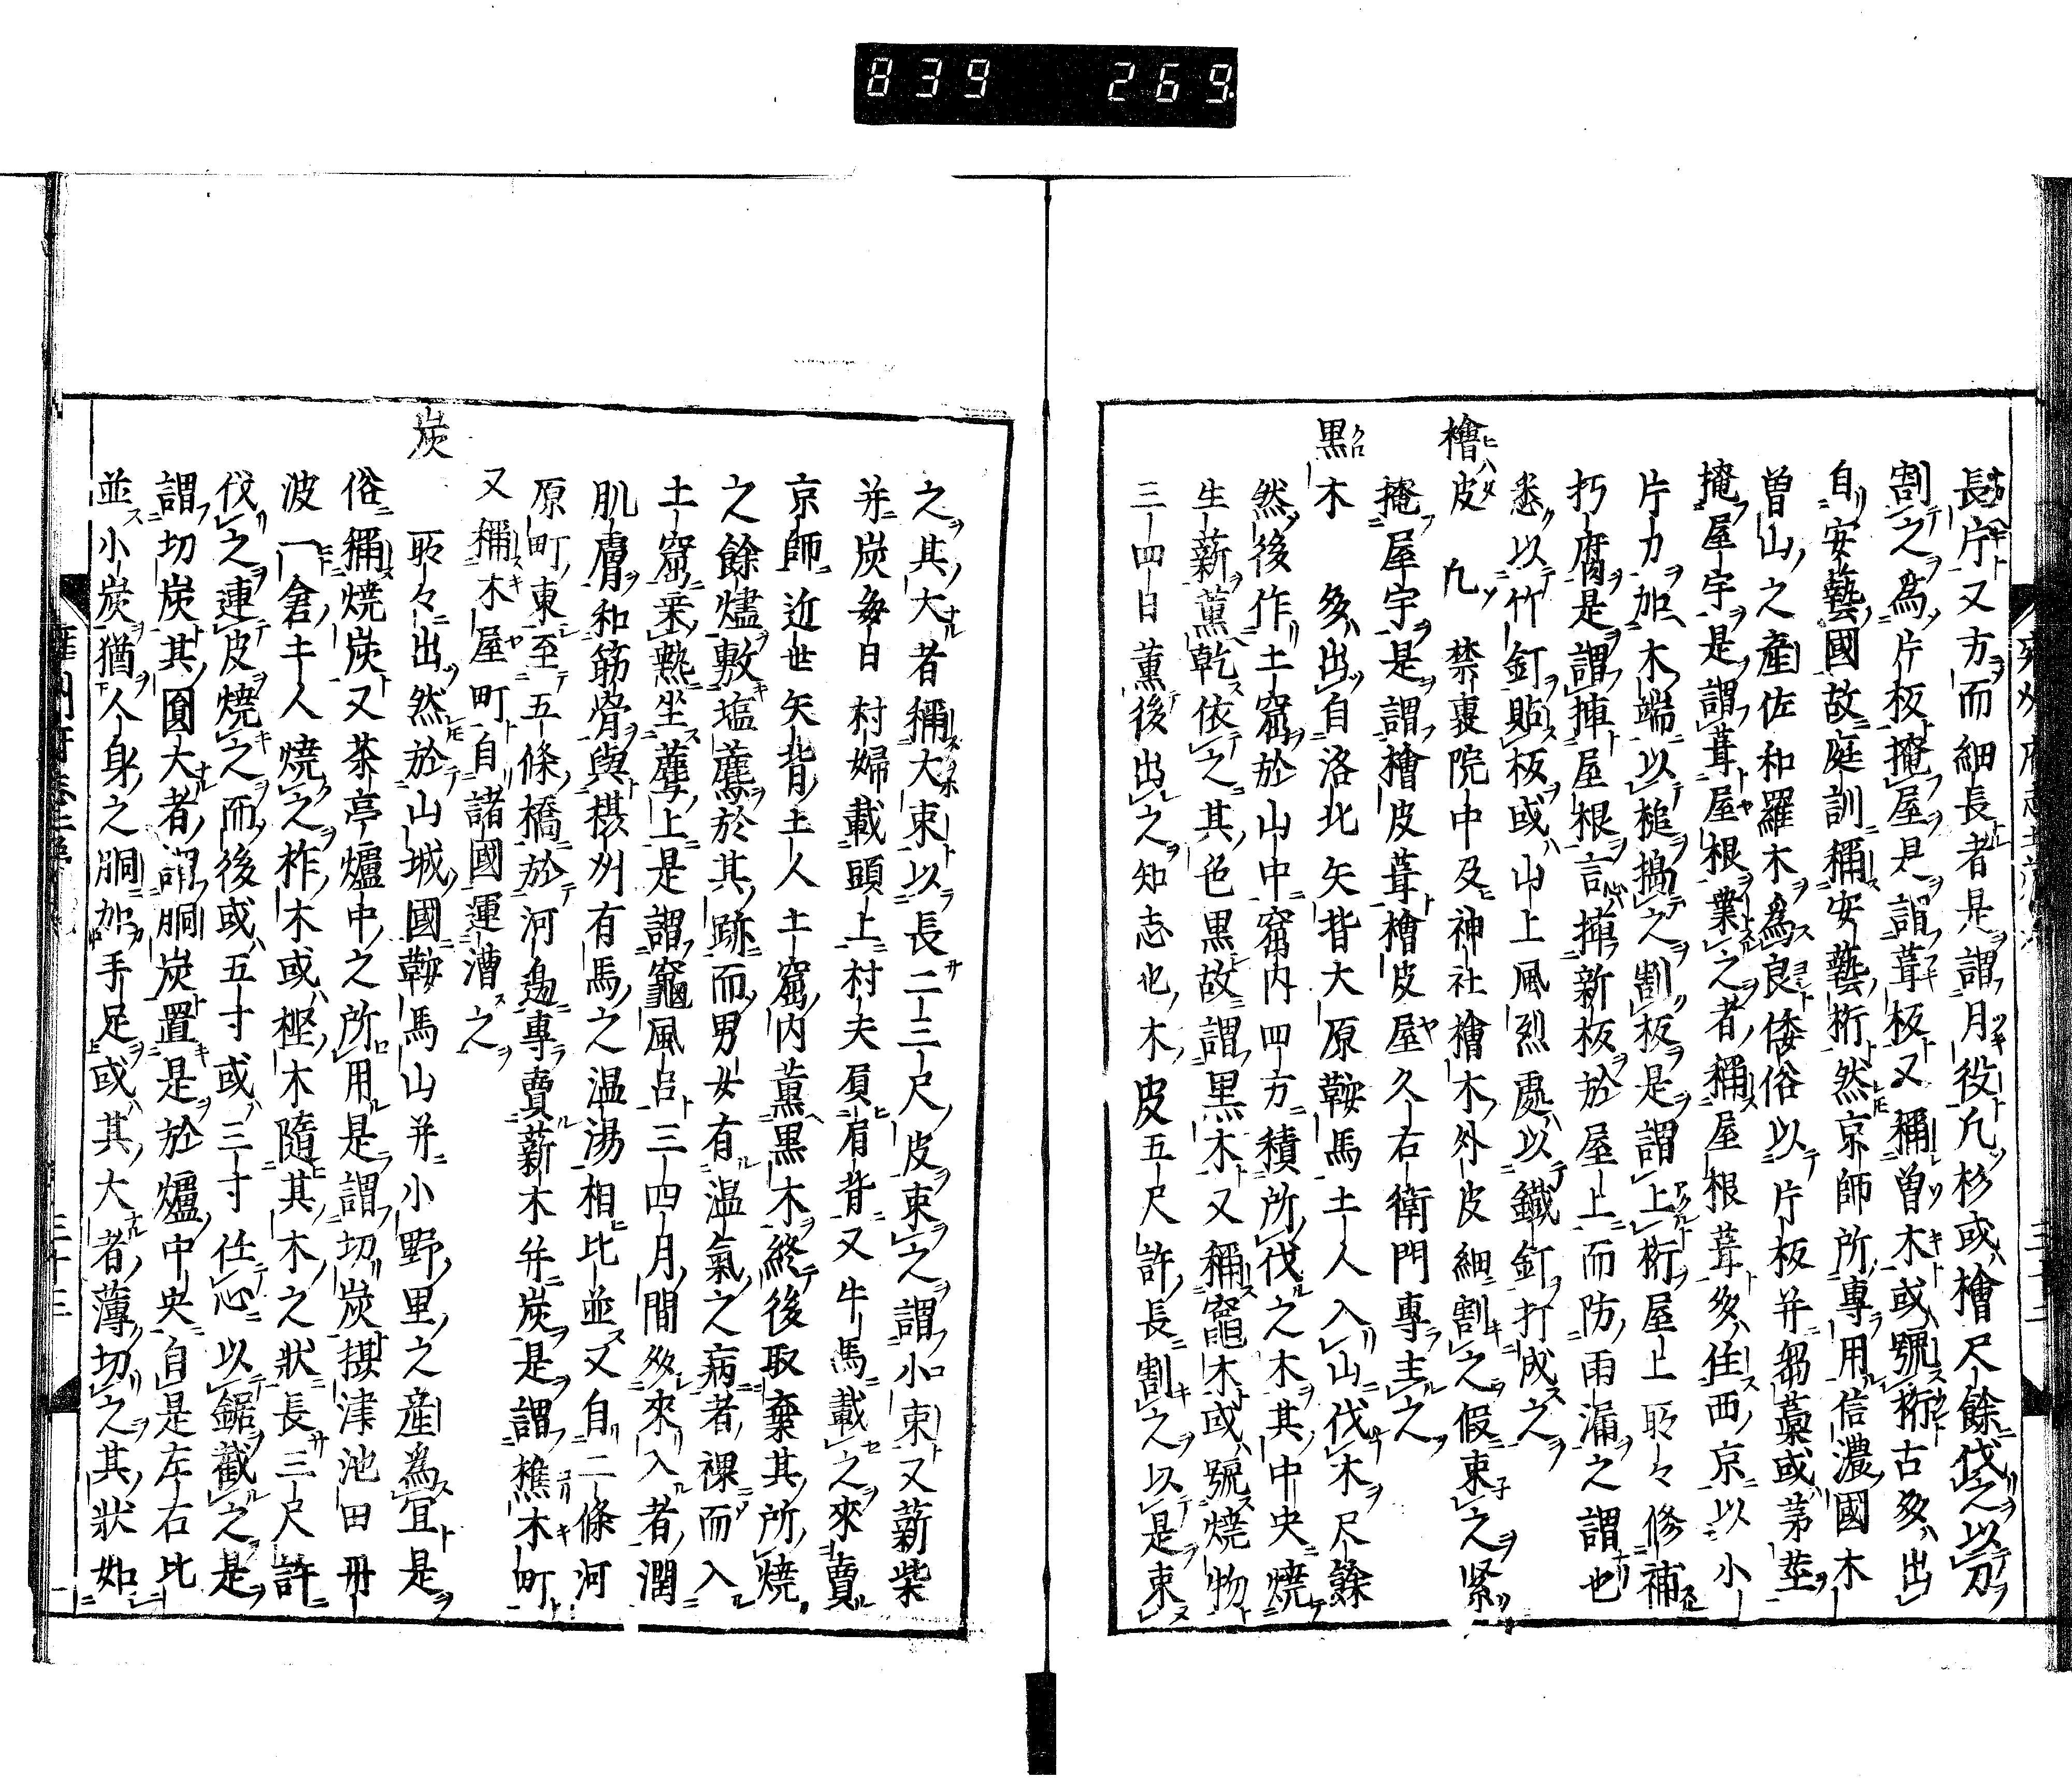 839 269
長片又方而細長者是謂月役凢杉或檜尺餘伐之以刀
割之爲片板掩屋是謂葺板又稱曽木或號桁古多出
自安藝國故庭訓稱安藝桁然京師所專用信濃國木
曽山之產佐和羅木爲良倭俗以片板并芻藁或茅莖
掩屋宇是謂葺屋根業之者稱屋根葺多住西京以小
片力加木端以槌擣之割板是謂上桁屋上聊々修補
朽腐是謂挿屋根言挿新板於屋上而防雨漏之謂也
悉以竹釘貼板或山上風烈處以鐵釘打成之
檜皮 凢禁裏院中及神社檜木外皮細割之假束之緊
掩屋宇是謂檜皮葺檜皮屋久右衛門專主之
黒木 多出自洛北矢背大原鞍馬土人入山伐木尺餘
然後作土窟於山中窟内四方積所伐之木其中央燒
生薪薫乾依之其色黒故謂黒木又稱竈木或號燒物
三四日薫後出之知志也木皮五尺許長割之以是束
之其大者稱大束以長二三尺皮束之謂小束又薪柴
并炭毎日村婦載頭上村夫負肩背又牛馬載之來賣
京師近世矢背土人土窟内薫黒木終後取棄其所燒
之餘燼敷塩薦於其跡而男女有温氣之病者裸而入
土窟乗熱坐薦上是謂竈風呂三四月間多來入者潤
肌膚和筋骨與摂州有馬之温湯相比並又自二條河
原町東至五條橋於河邊專賣薪木并炭是謂樵木町
又稱木屋町自諸國運漕之
炭 聊々出然於山城國鞍馬山并小野里之産爲宜是
俗稱燒炭又茶亭爐中之所用是謂切炭摂津池田丹
波一倉土人燒之柞木或樫木隨其木之狀長三尺許
伐之連皮燒之而後或五寸或三寸任心以鋸截之是
謂切炭其圓大者謂胴炭置是於爐中央自是左右比
並小炭猶人身之胴加手足或其大者薄切之其狀如